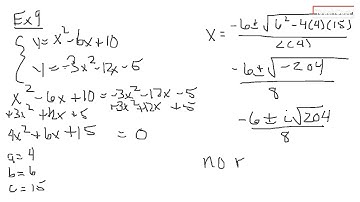 Ex 9
y = x² - 6x + 10
y = -3x² - 12x - 5
x² - 6x + 10 = -3x² - 12x - 5
+3x² + 12x + 5 +3x² + 12x + 5
4x² + 6x + 15 = 0
a = 4
b = 6
c = 15
x = (-6 ± √(6² - 4(4)(15))) / 2(4)
(-6 ± √(-204)) / 8
(-6 ± i√204) / 8
no r